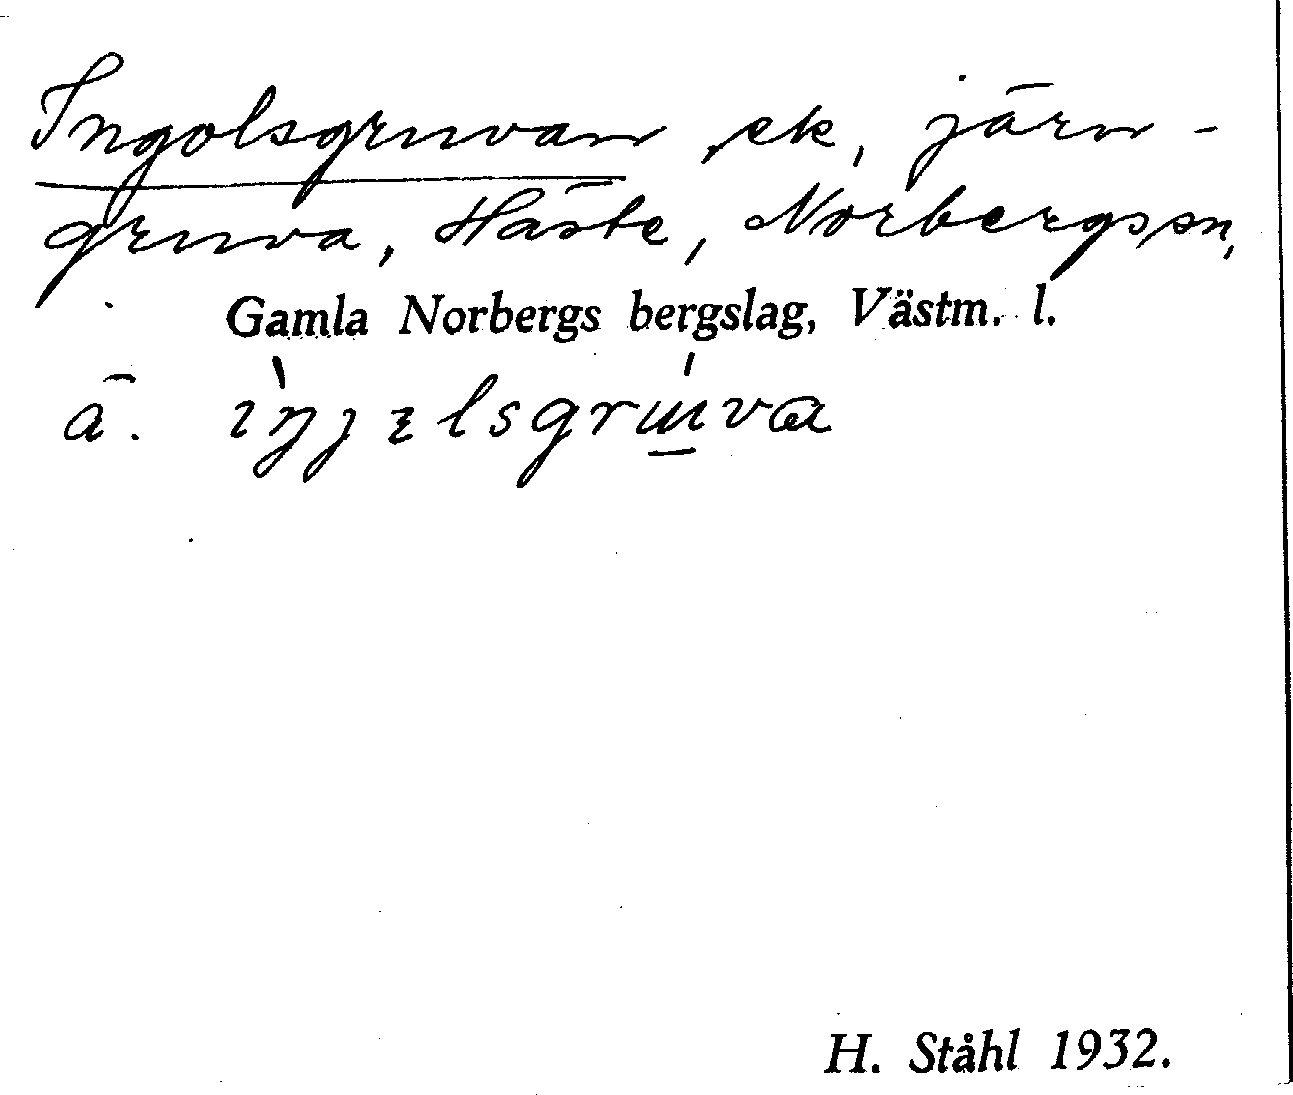 Ingolsgruvan, ek, järn-
gruva, Häste, Norbergs sn,
Gamla Norbergs bergslag, Västm. l.
ā. ìŋjɛlsgrú̲va
H. Ståhl 1932.